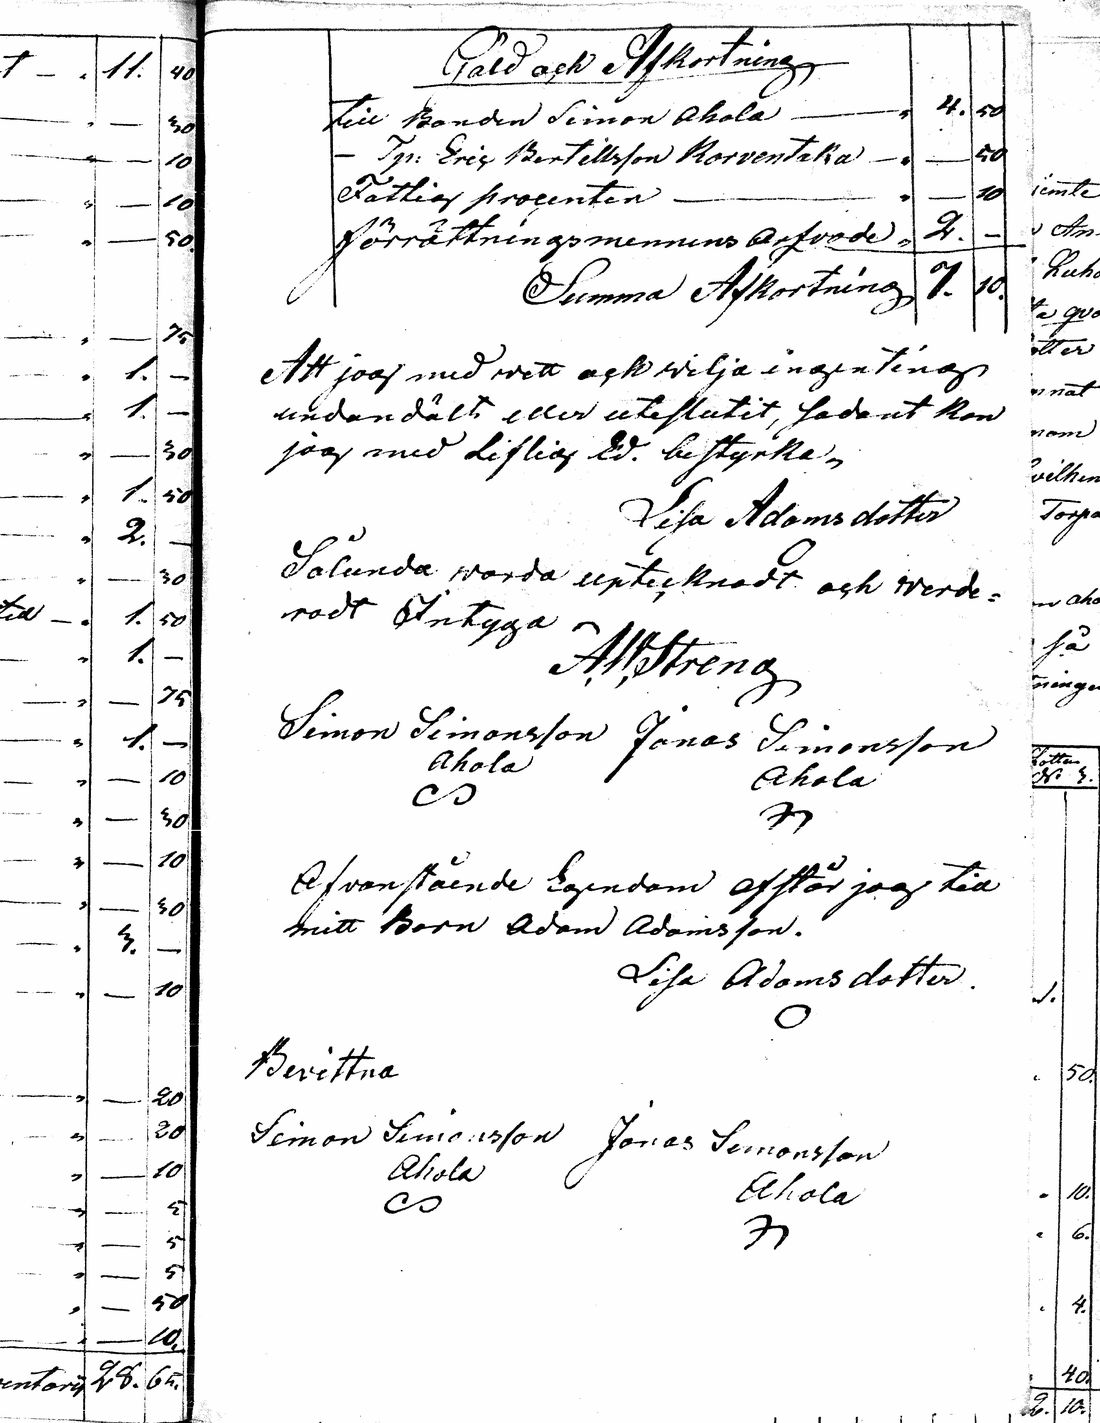 t - " 11. 40
" — 30
" — 10
" — 10
" — 50.
" — 75
" 1. —
" 1. —
" — 30
" 1. 50
" 2. —
" — 30
till - " 1. 50
" 1. —
" — 75
" 1. —
" — 10
" — 30
" — 10
" — 30
" 3. —
" — 10
" — 20
" — 20
" — 10
" — 5
" — 5
" — 5
" — 50
" — 10.
ventarij 28. 65.
Gäld och Afkortning
till Bonden Simon Ahola — " 4. 50
- Tp: Eric Bertillsson Korventaka — " — 50
Fattig procenten — " — 10
förrättningsmennens Arfvode " 2. —
Summa Afkortning 7. 10.
Att jag med vett och vilja ingenting
undandålt eller uteslutit, sadant kan
jag med Liflig Ed. bestyrka.
Lisa Adamsdotter
O
Sålunda warda uptecknadt och verde=
radt Intyga
A. W. Streng
Simon Simonsson Jonas Simonsson
Ahola Ahola
Afvanstäende Egendom afstår jag till
mitt Barn Adam Adamsson.
Lisa Adamsdotter.
O
Bevittna
Simon Simonsson Jonas Simonsson
Ahola Ahola
iemte
An-
Luho
gva
otter
mnat
nom
vilken
Torpa
aho
så
tninge
dotter
No 3.
50.
" 10.
" 6.
" 4.
40.
2. 10.